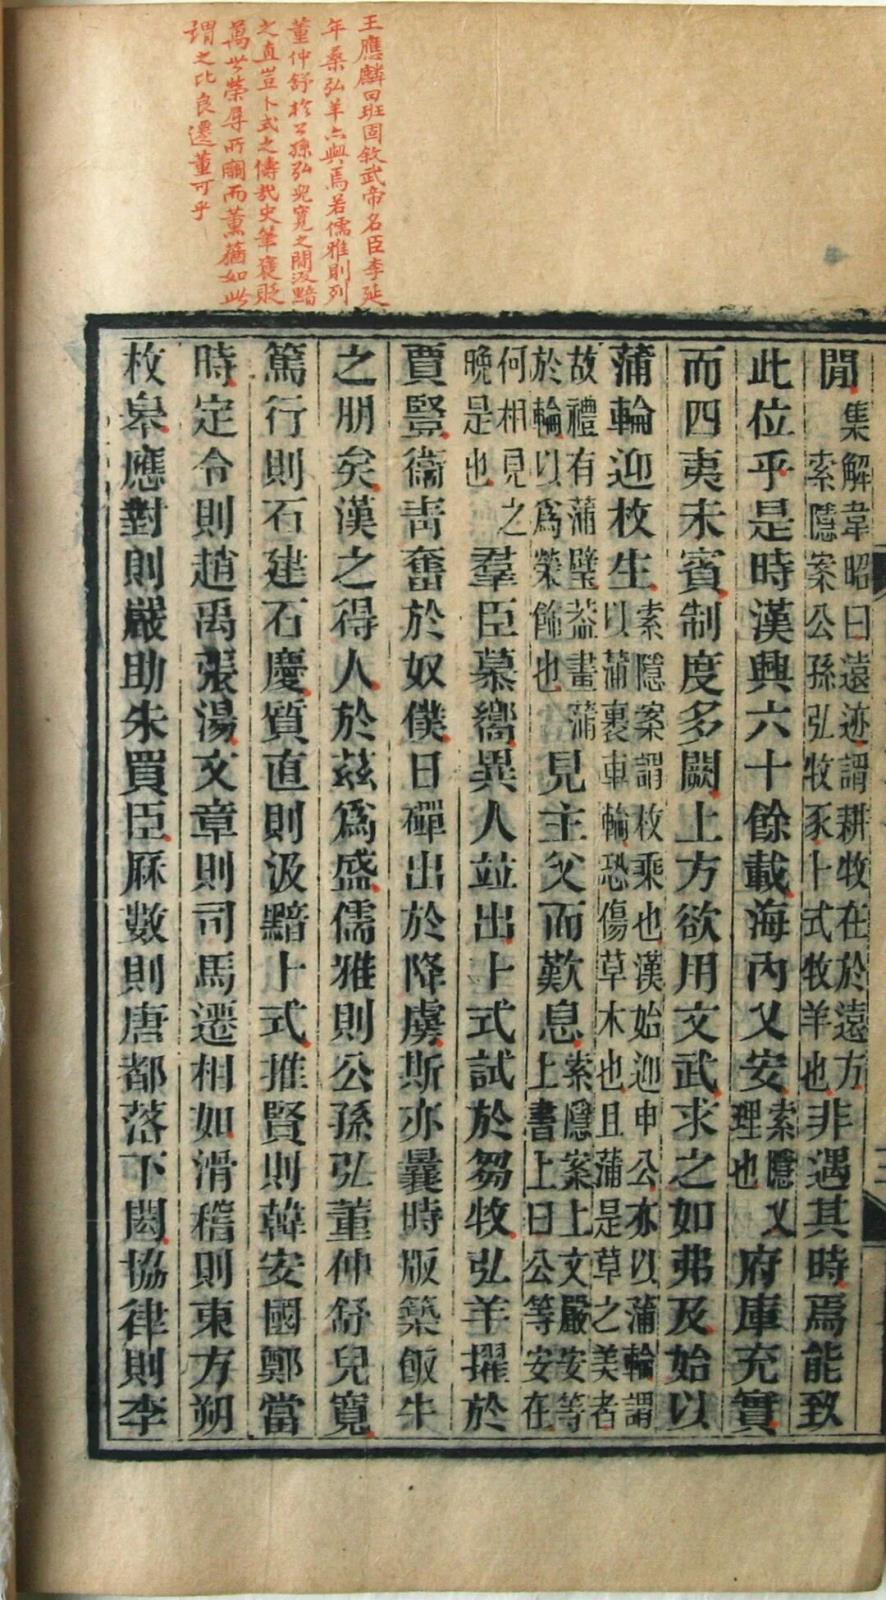 王應麟曰班固敘武帝名臣李延
年桑弘羊亦與焉若儒雅則列
董仲舒於公孫弘兒寬之間汲黯
之直豈卜式之儔哉史筆襃貶
萬世榮辱所關而薰蕕如此
謂之比良遷董可乎
閒集解韋昭曰遠迹謂耕牧在於遠方索隱案公孫弘牧豕卜式牧羊也非遇其時焉能致
此位乎是時漢興六十餘載海內乂安索隱乂理也府庫充實
而四夷未賓制度多闕上方欲用文武求之如弗及始以
蒲輪迎枚生索隱案謂枚乘也漢始迎申公亦以蒲輪謂以蒲裹車輪恐傷草木也且蒲是草之美者
故禮有蒲璧葢畫蒲於輪以爲榮飾也見主父而歎息索隱案上文嚴安等上書上曰公等安在
何相見之晚是也羣臣慕嚮異人並出卜式試於芻牧弘羊擢於
賈豎衞青奮於奴僕日磾出於降虜斯亦曩時版築飯牛
之朋矣漢之得人於茲爲盛儒雅則公孫弘董仲舒兒寬
篤行則石建石慶質直則汲黯卜式推賢則韓安國鄭當
時定令則趙禹張湯文章則司馬遷相如滑稽則東方朔
枚皋應對則嚴助朱買臣厤數則唐都落下閎協律則李